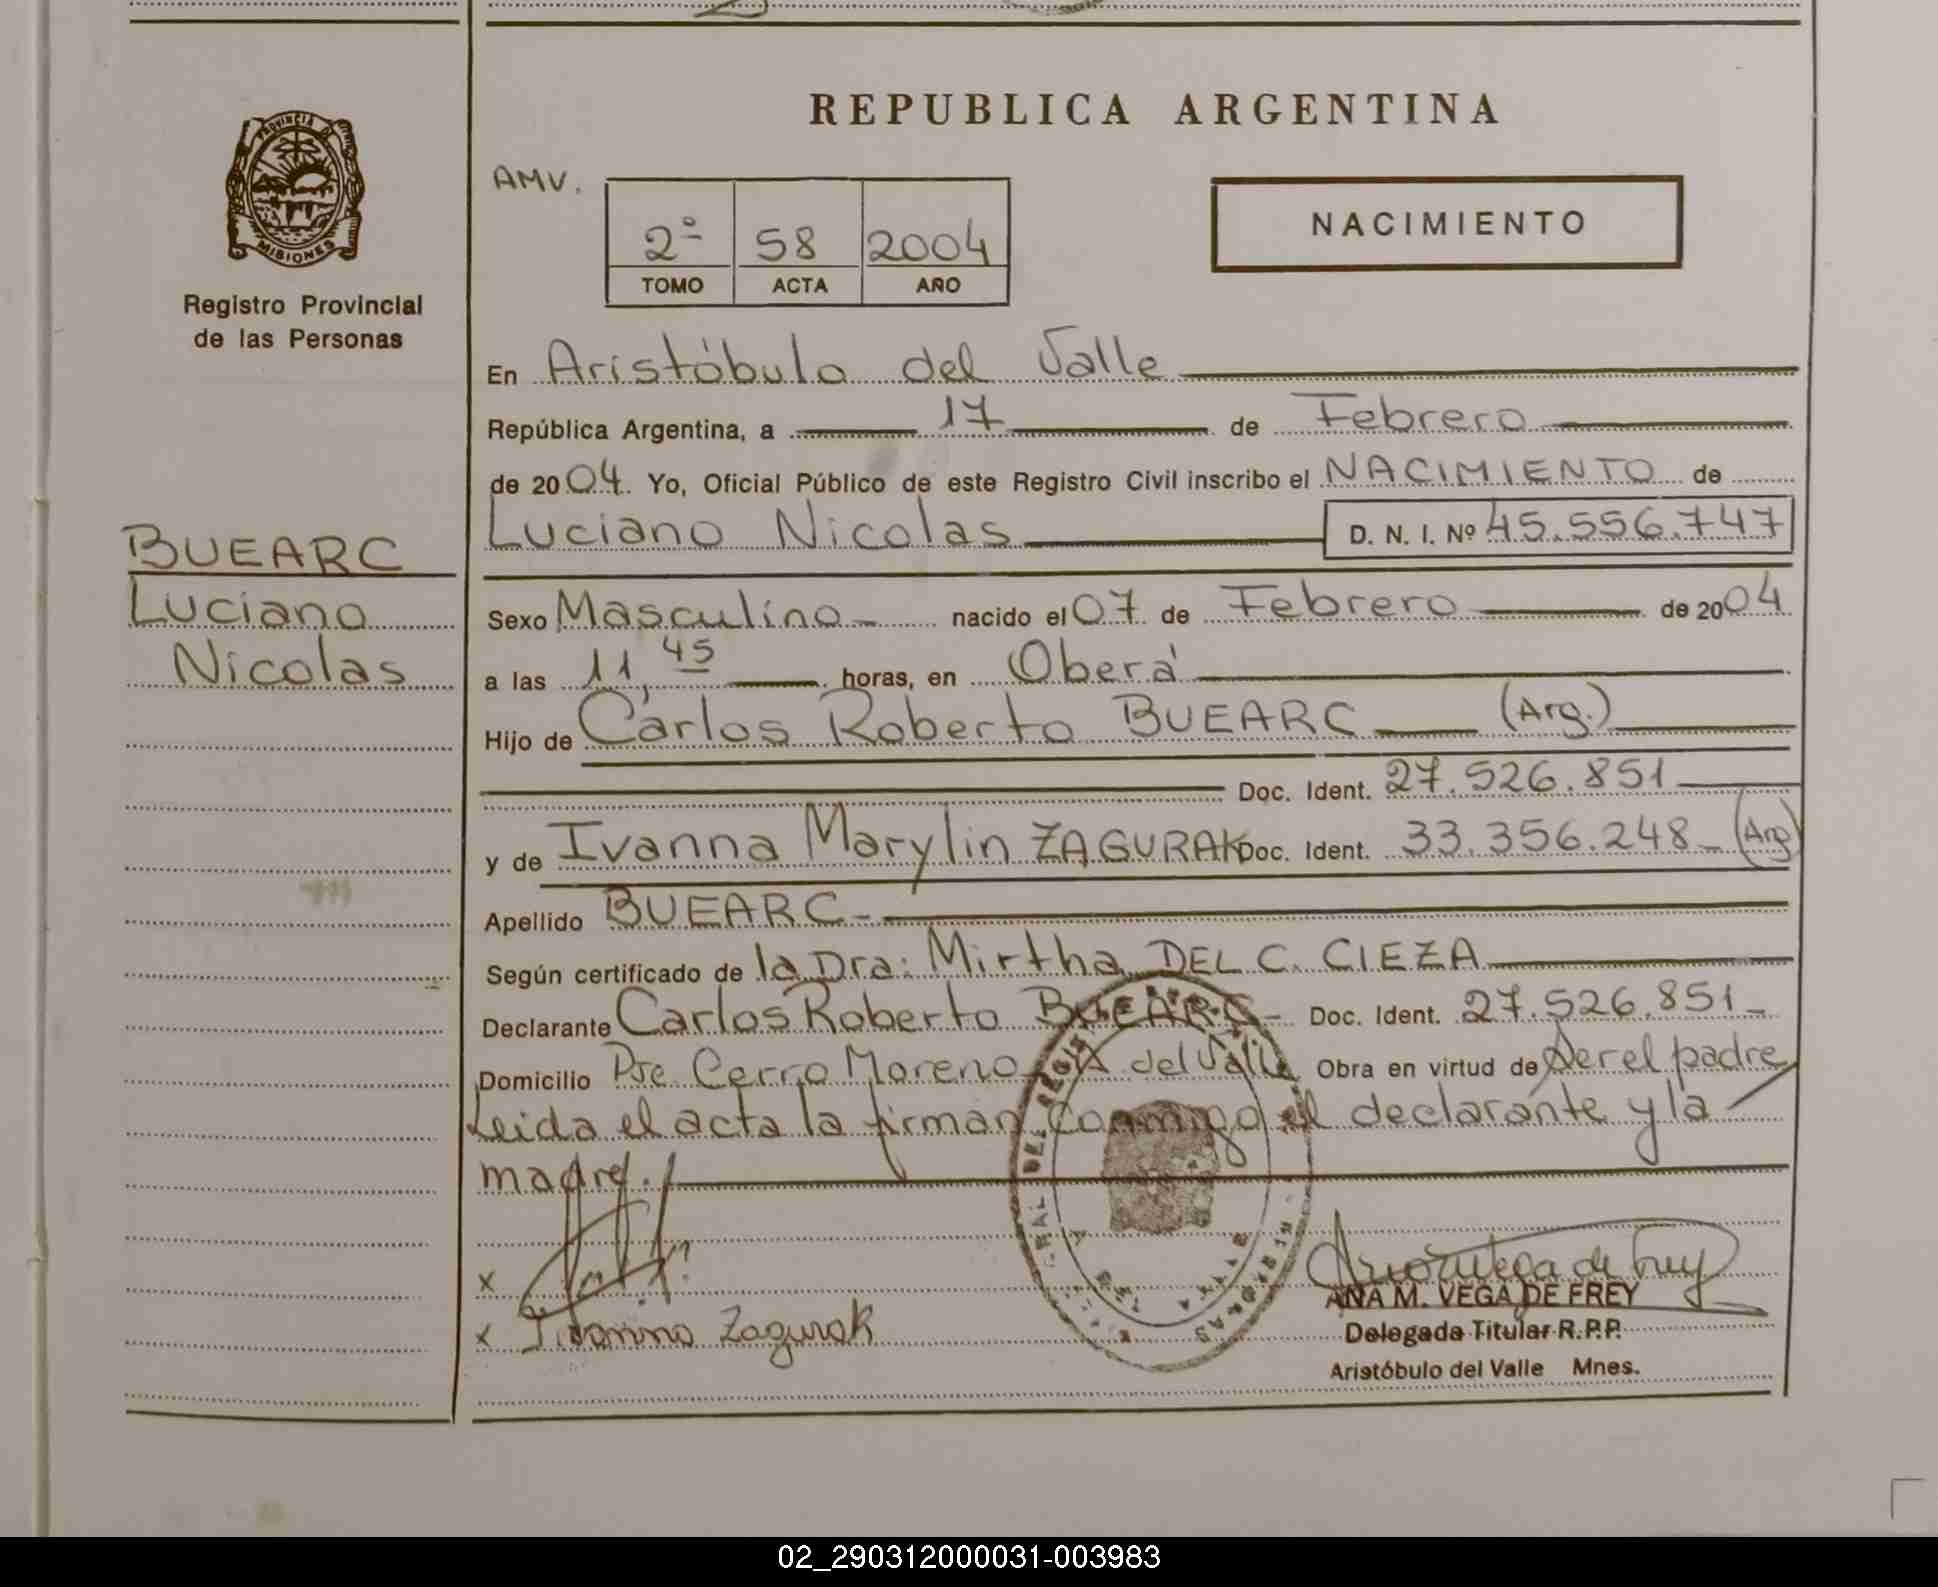 REPUBLICA ARGENTINA
PROVINCIA DE
MISIONES
Registro Provincial
de las Personas
AMV.
2º 58 2004
TOMO ACTA AÑO
NACIMIENTO
En Aristóbulo del Valle
República Argentina, a 17 de Febrero
de 2004. Yo, Oficial Público de este Registro Civil inscribo el NACIMIENTO de
Luciano Nicolas D. N. I. Nº 45.556.747
BUEARC
Luciano
Nicolas
Sexo Masculino nacido el 07 de Febrero de 2004
a las 11,45 horas, en Oberá
Hijo de Carlos Roberto BUEARC (Arg.)
Doc. Ident. 27.526.851
y de Ivanna Marylin ZAGURAK Doc. Ident. 33.356.248 (Arg)
Apellido BUEARC
Según certificado de la Dra: Mirtha DEL C. CIEZA
Declarante Carlos Roberto BUEARC Doc. Ident. 27.526.851
Domicilio Pje Cerro Moreno A del Valle Obra en virtud de Ser el padre
Leida el acta la firman conmigo el declarante y la
madre.
x
x Ivanna Zagurak
ANA M. VEGA DE FREY
Delegada Titular R.P.P.
Aristóbulo del Valle Mnes.
02_290312000031-003983